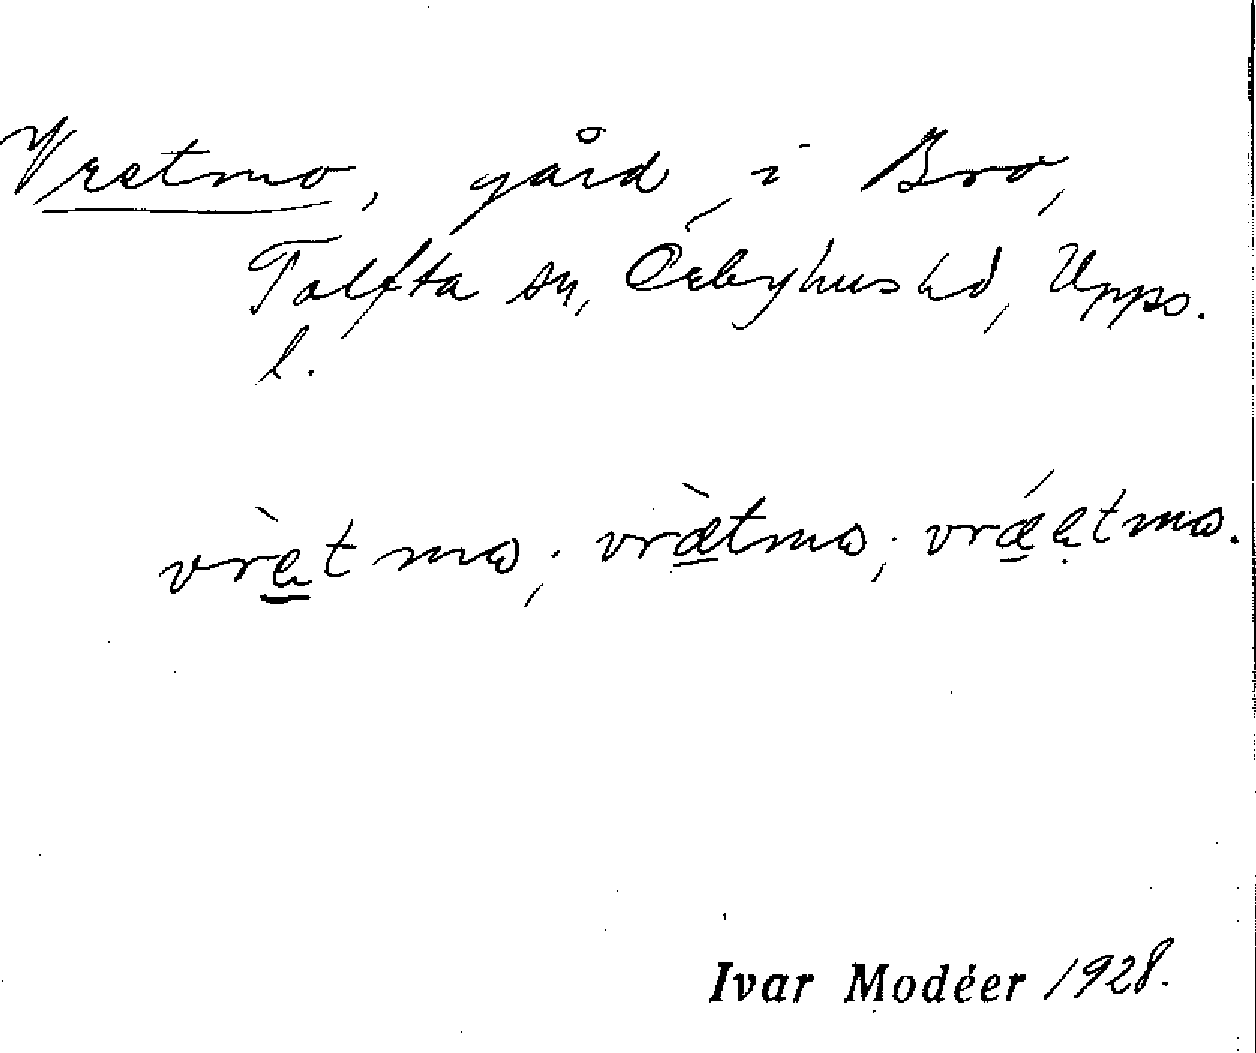 Vretmo, gård, i Bro,
Tolfta sn, Örbyhus hd, Upps.
l.
vrè̱tmɷ; vræ̱̀tmɷ; vrǽ̱ętmɷ.
Ivar Modéer 1928.